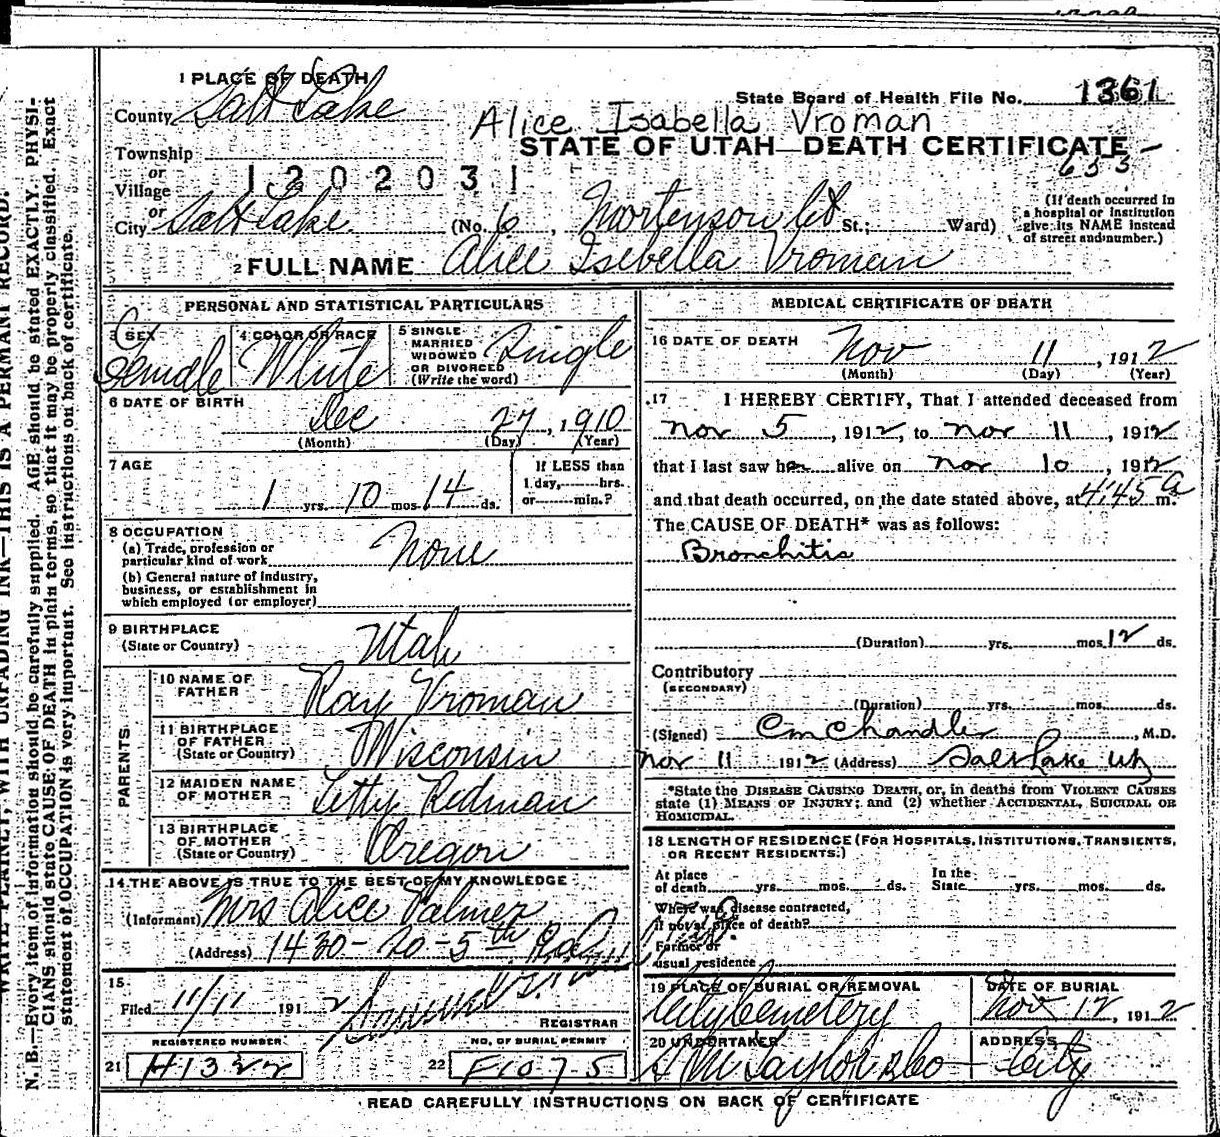 1 PLACE OF DEATH
County Salt Lake
State Board of Health File No. 1361
Alice Isabella Vroman
STATE OF UTAH—DEATH CERTIFICATE
653-
Township
or
Village
1202031
or
City Salt Lake (No. 6, Mortenson Ct St.; Ward)
(If death occurred in a hospital or institution give its NAME instead of street and number.)
2 FULL NAME Alice Isebella Vroman
PERSONAL AND STATISTICAL PARTICULARS
3 SEX Female
4 COLOR OR RACE White
5 SINGLE MARRIED WIDOWED OR DIVORCED (Write the word) Single
6 DATE OF BIRTH Dec 27, 1910
(Month) (Day) (Year)
7 AGE 1 yrs. 10 mos. 14 ds.
If LESS than 1 day, hrs. or min.?
8 OCCUPATION
(a) Trade, profession or particular kind of work None
(b) General nature of industry, business, or establishment in which employed (or employer)
9 BIRTHPLACE (State or Country) Utah
PARENTS
10 NAME OF FATHER Ray Vroman
11 BIRTHPLACE OF FATHER (State or Country) Wisconsin
12 MAIDEN NAME OF MOTHER Letty Redman
13 BIRTHPLACE OF MOTHER (State or Country) Oregon
14 THE ABOVE IS TRUE TO THE BEST OF MY KNOWLEDGE
(Informant) Mrs Alice Palmer
(Address) 1430-20-5th
15
Filed 11/11 1912
REGISTRAR
REGISTERED NUMBER
21 H1322
NO. OF BURIAL PERMIT
22 F1075
MEDICAL CERTIFICATE OF DEATH
16 DATE OF DEATH Nov 11, 1912
(Month) (Day) (Year)
17 I HEREBY CERTIFY, That I attended deceased from
Nov 5, 1912, to Nov 11, 1912
that I last saw her alive on Nov 10, 1912
and that death occurred, on the date stated above, at 4:45 a m.
The CAUSE OF DEATH* was as follows:
Bronchitis
(Duration) yrs. mos. 12 ds.
Contributory
(SECONDARY)
(Duration) yrs. mos. ds.
(Signed) CM Chandler, M.D.
Nov 11 1912 (Address) Salt Lake Ut
*State the DISEASE CAUSING DEATH, or, in deaths from VIOLENT CAUSES state (1) MEANS OF INJURY; and (2) whether ACCIDENTAL, SUICIDAL OR HOMICIDAL.
18 LENGTH OF RESIDENCE (FOR HOSPITALS, INSTITUTIONS, TRANSIENTS, OR RECENT RESIDENTS.)
At place of death yrs. mos. ds. In the State yrs. mos. ds.
Where was disease contracted, if not at place of death?
Former or usual residence
19 PLACE OF BURIAL OR REMOVAL City Cemetery
DATE OF BURIAL Nov 12, 1912
20 UNDERTAKER S M Taylor & Co
ADDRESS City
READ CAREFULLY INSTRUCTIONS ON BACK OF CERTIFICATE
WRITE PLAINLY, WITH UNFADING INK—THIS IS A PERMANENT RECORD.
N. B.—Every item of information should be carefully supplied. AGE should be stated EXACTLY. PHYSI-
CIANS should state CAUSE OF DEATH in plain terms, so that it may be properly classified. Exact
statement of OCCUPATION is very important. See instructions on back of certificate.